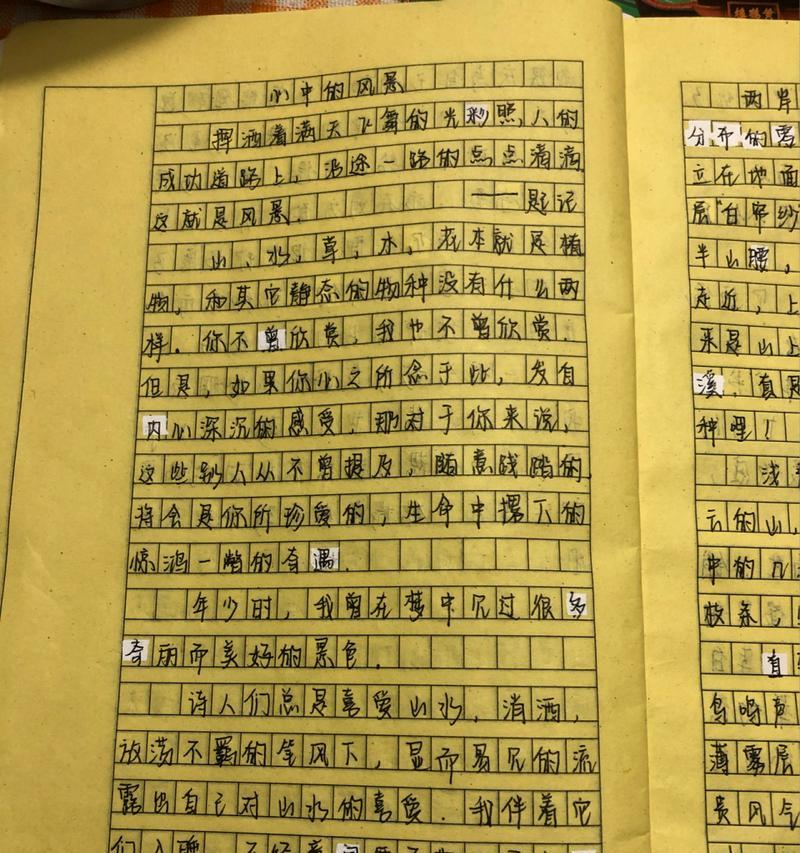 心中的风景
挥洒着满天飞舞的光彩照人的
成功道路上，沿途一路的点点滴滴
这就是风景. ——题记
山、水，草，木，花本就是植
物，和其它静态的物种没有什么两
样。你不曾欣赏，我也不曾欣赏.
但是，如果你心之所念于此，发自
内心深沉的感受，那对于你来说，
这些别人从不曾提及，随意践踏的
将会是你所珍爱的，生命中撂下的
惊鸿一瞥的奇遇.
年少时，我曾在梦中见过很多
奇丽而美好的景色.
诗人们总是喜爱山水，消洒，
放荡不羁的笔风下，显而易见的流
露出自己对山水的喜爱.我伴着它
们入睡
两岸
分开的
立在地面
层"白
半山腰，
走近，上
来是山上
溪.真是
种哩！
浅
云的山，
中的几
枝条，
直
鸟鸣
薄雾层
贵风气